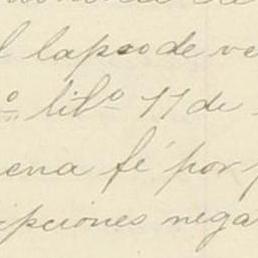 l lapso de ve
º libº 17 de
ena fé por p
ipciones nega